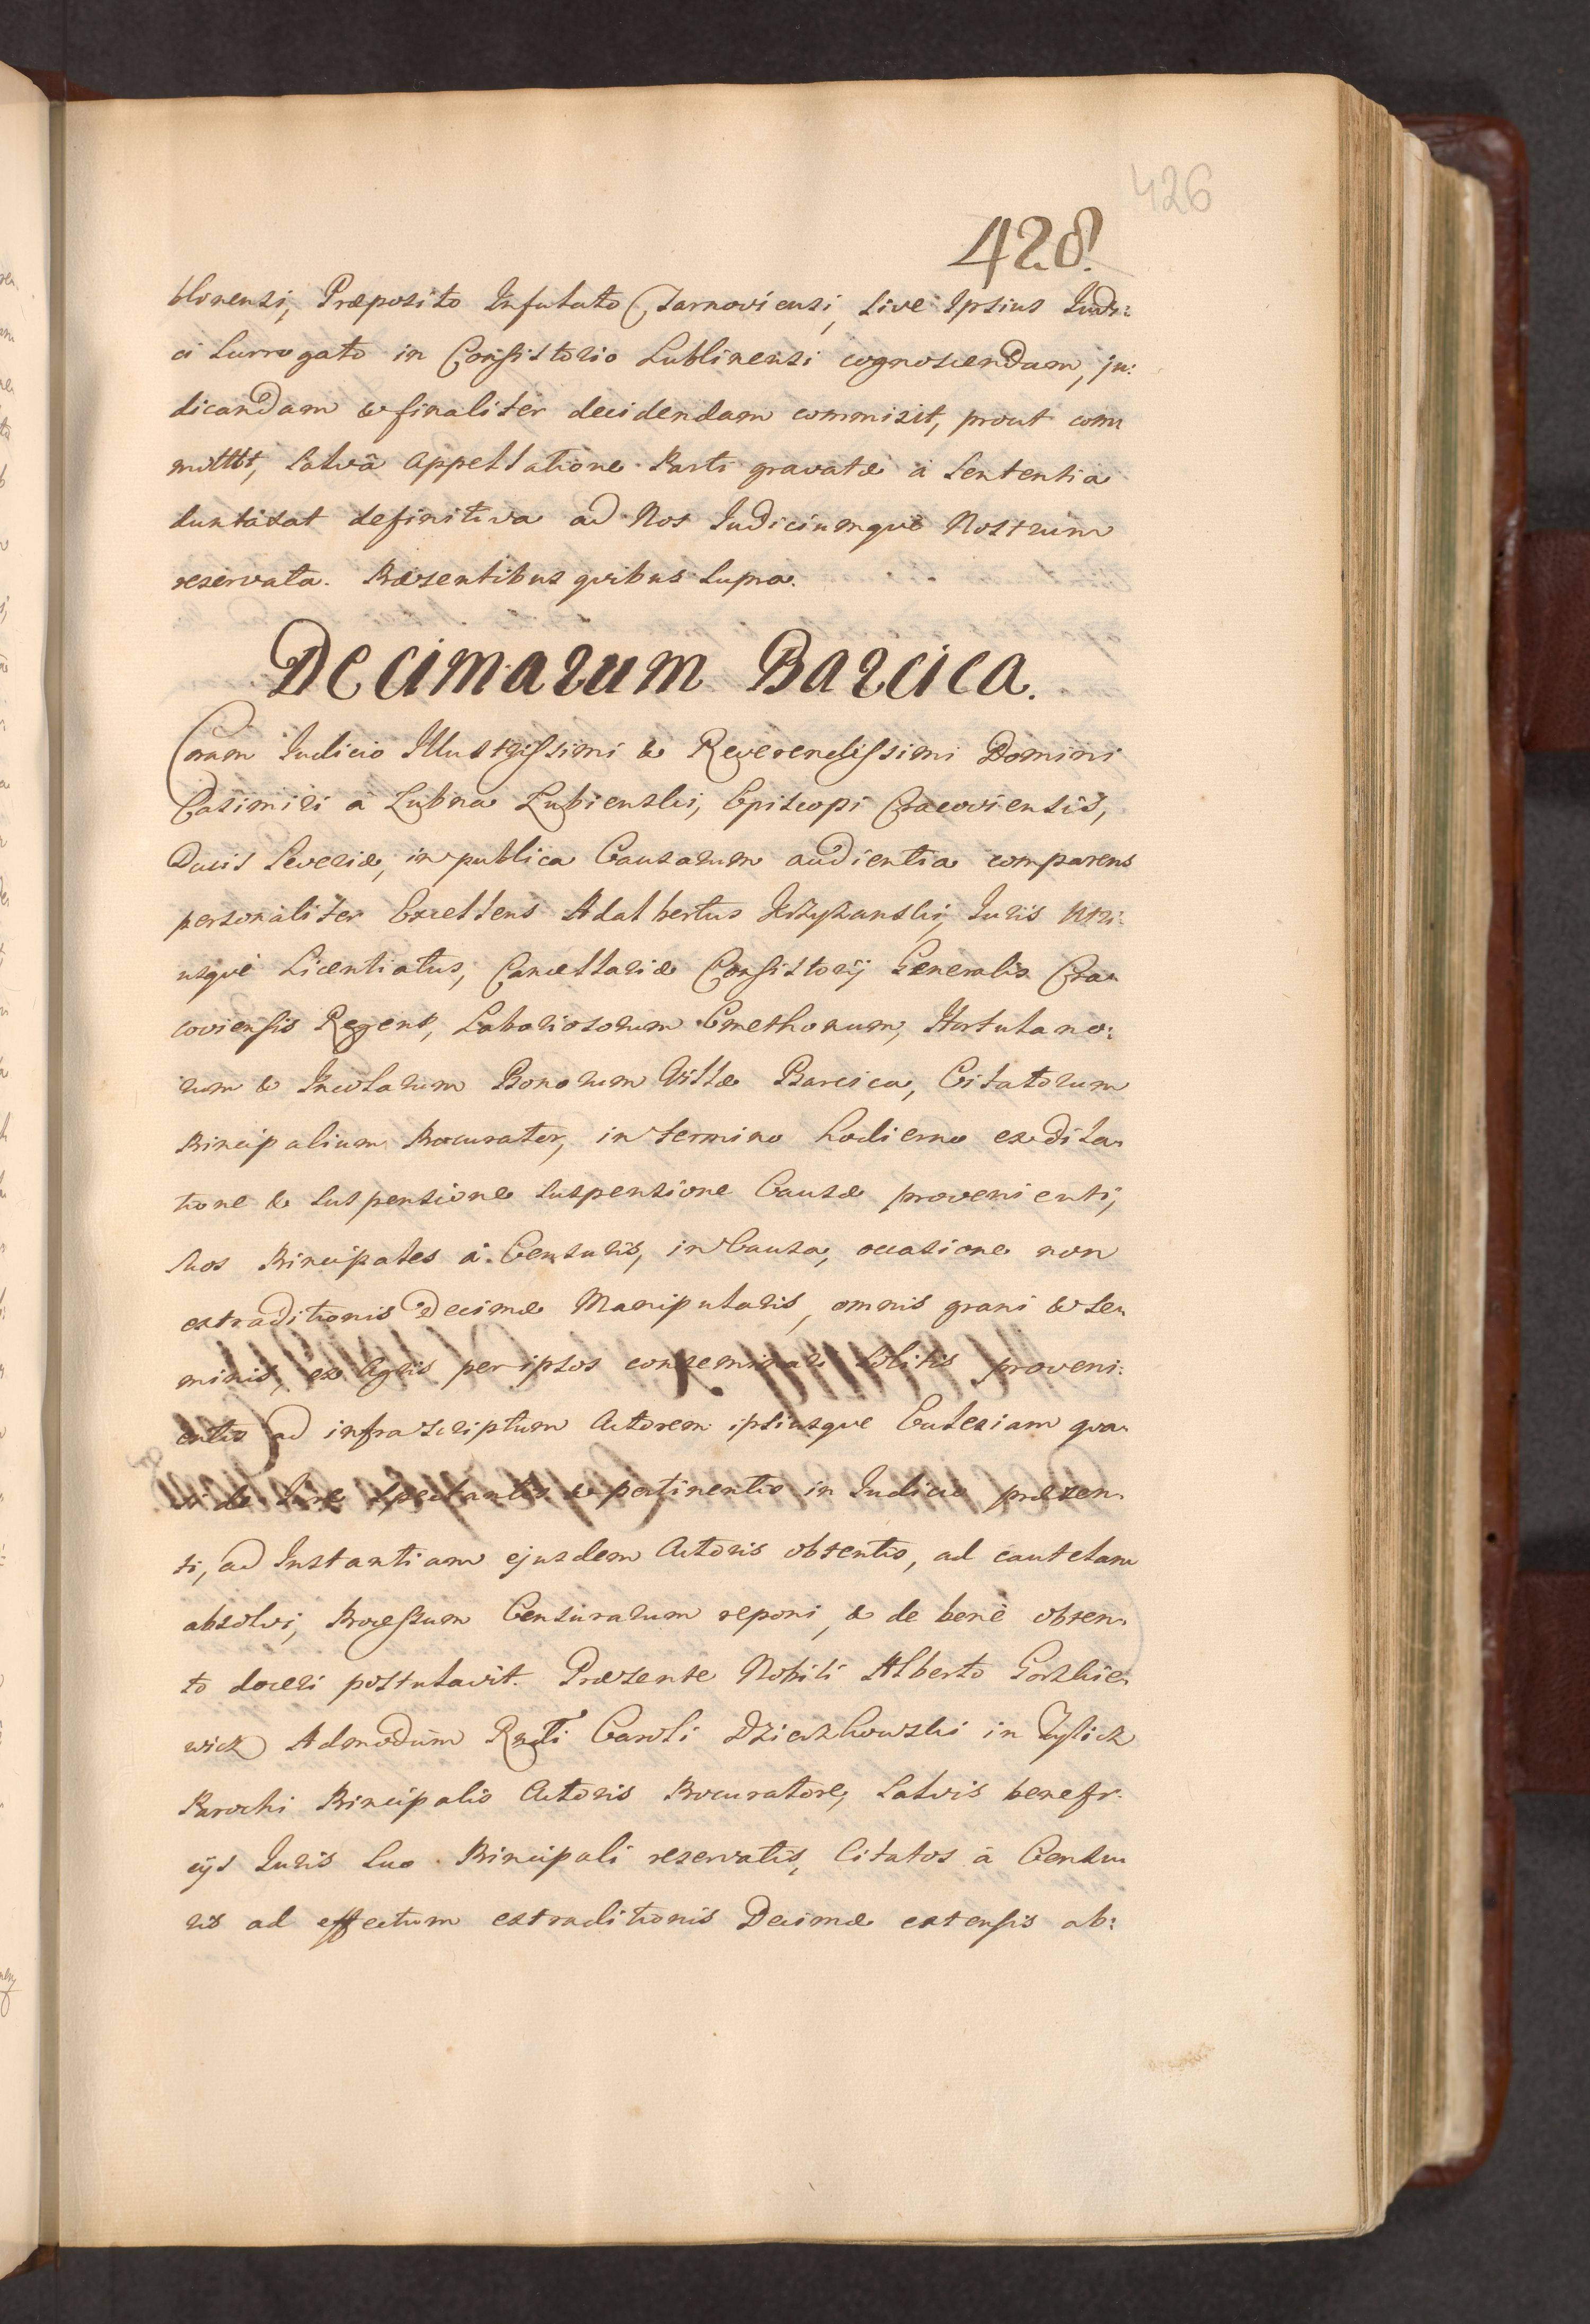 426
428.
blinensi, Præposito Infulato Tarnoviensi, sive Ipsius Judi:
ci Surrogato in Consistorio Lublinensi cognoscendam, ju:
dicandam & finaliter decidendam commisit, prout com
mittit, salvâ Appellatione Parti gravatæ à Sententia
duntaxat definitiva ad Nos Judiciumquè Nostrum
reservata. Præsentibus quibus supra.
Decimarum Barcica.
Coram Judicio Illustrissimi & Reverendissimi Domini
Casimiri à Lubna Lubienski, Episcopi Cracoviensis,
Ducis Severiæ, in publica Causarum audientia comparens
personaliter Excellens Adalbertus Krzyzanski, Juris Utri:
usquè Licentiatus, Cancellariæ Consistorij Generalis Cra
coviensis Regens, Laboriosorum Cmethonum, Hortulano:
rum & Incolarum Bonorum Villæ Barcica, Citatorum
Principalium Procurator, in termino hodierno ex dila
tione & suspensione suspensione Causæ provenienti,
suos Principales à Censuris, in Causa, occasione non
extraditionis Decimæ Manipularis, omnis grani & se
minis, ex Agris per ipsos conseminari solitis proveni:
entis ad infrascriptum Actorem ipsiusque Ecclesiam qua
si de Jure spectantis & pertinentis in Judicio præsen
ti, ad Instantiam ejusdem Actoris obtentis, ad cautelam
absolvi, Processum Censurarum reponi, & de benè obten
to doceri postulavit. Præsente Nobili Alberto Gorzkie
wicz Admodum Rndi Caroli Dzieszkowski in Tylicz
Parochi Principalis Actoris Procuratore, salvis benefi:
cijs Juris suo Principali reservatis, Citatos à Censu
ris ad effectum extraditionis Decimæ extensis ab: